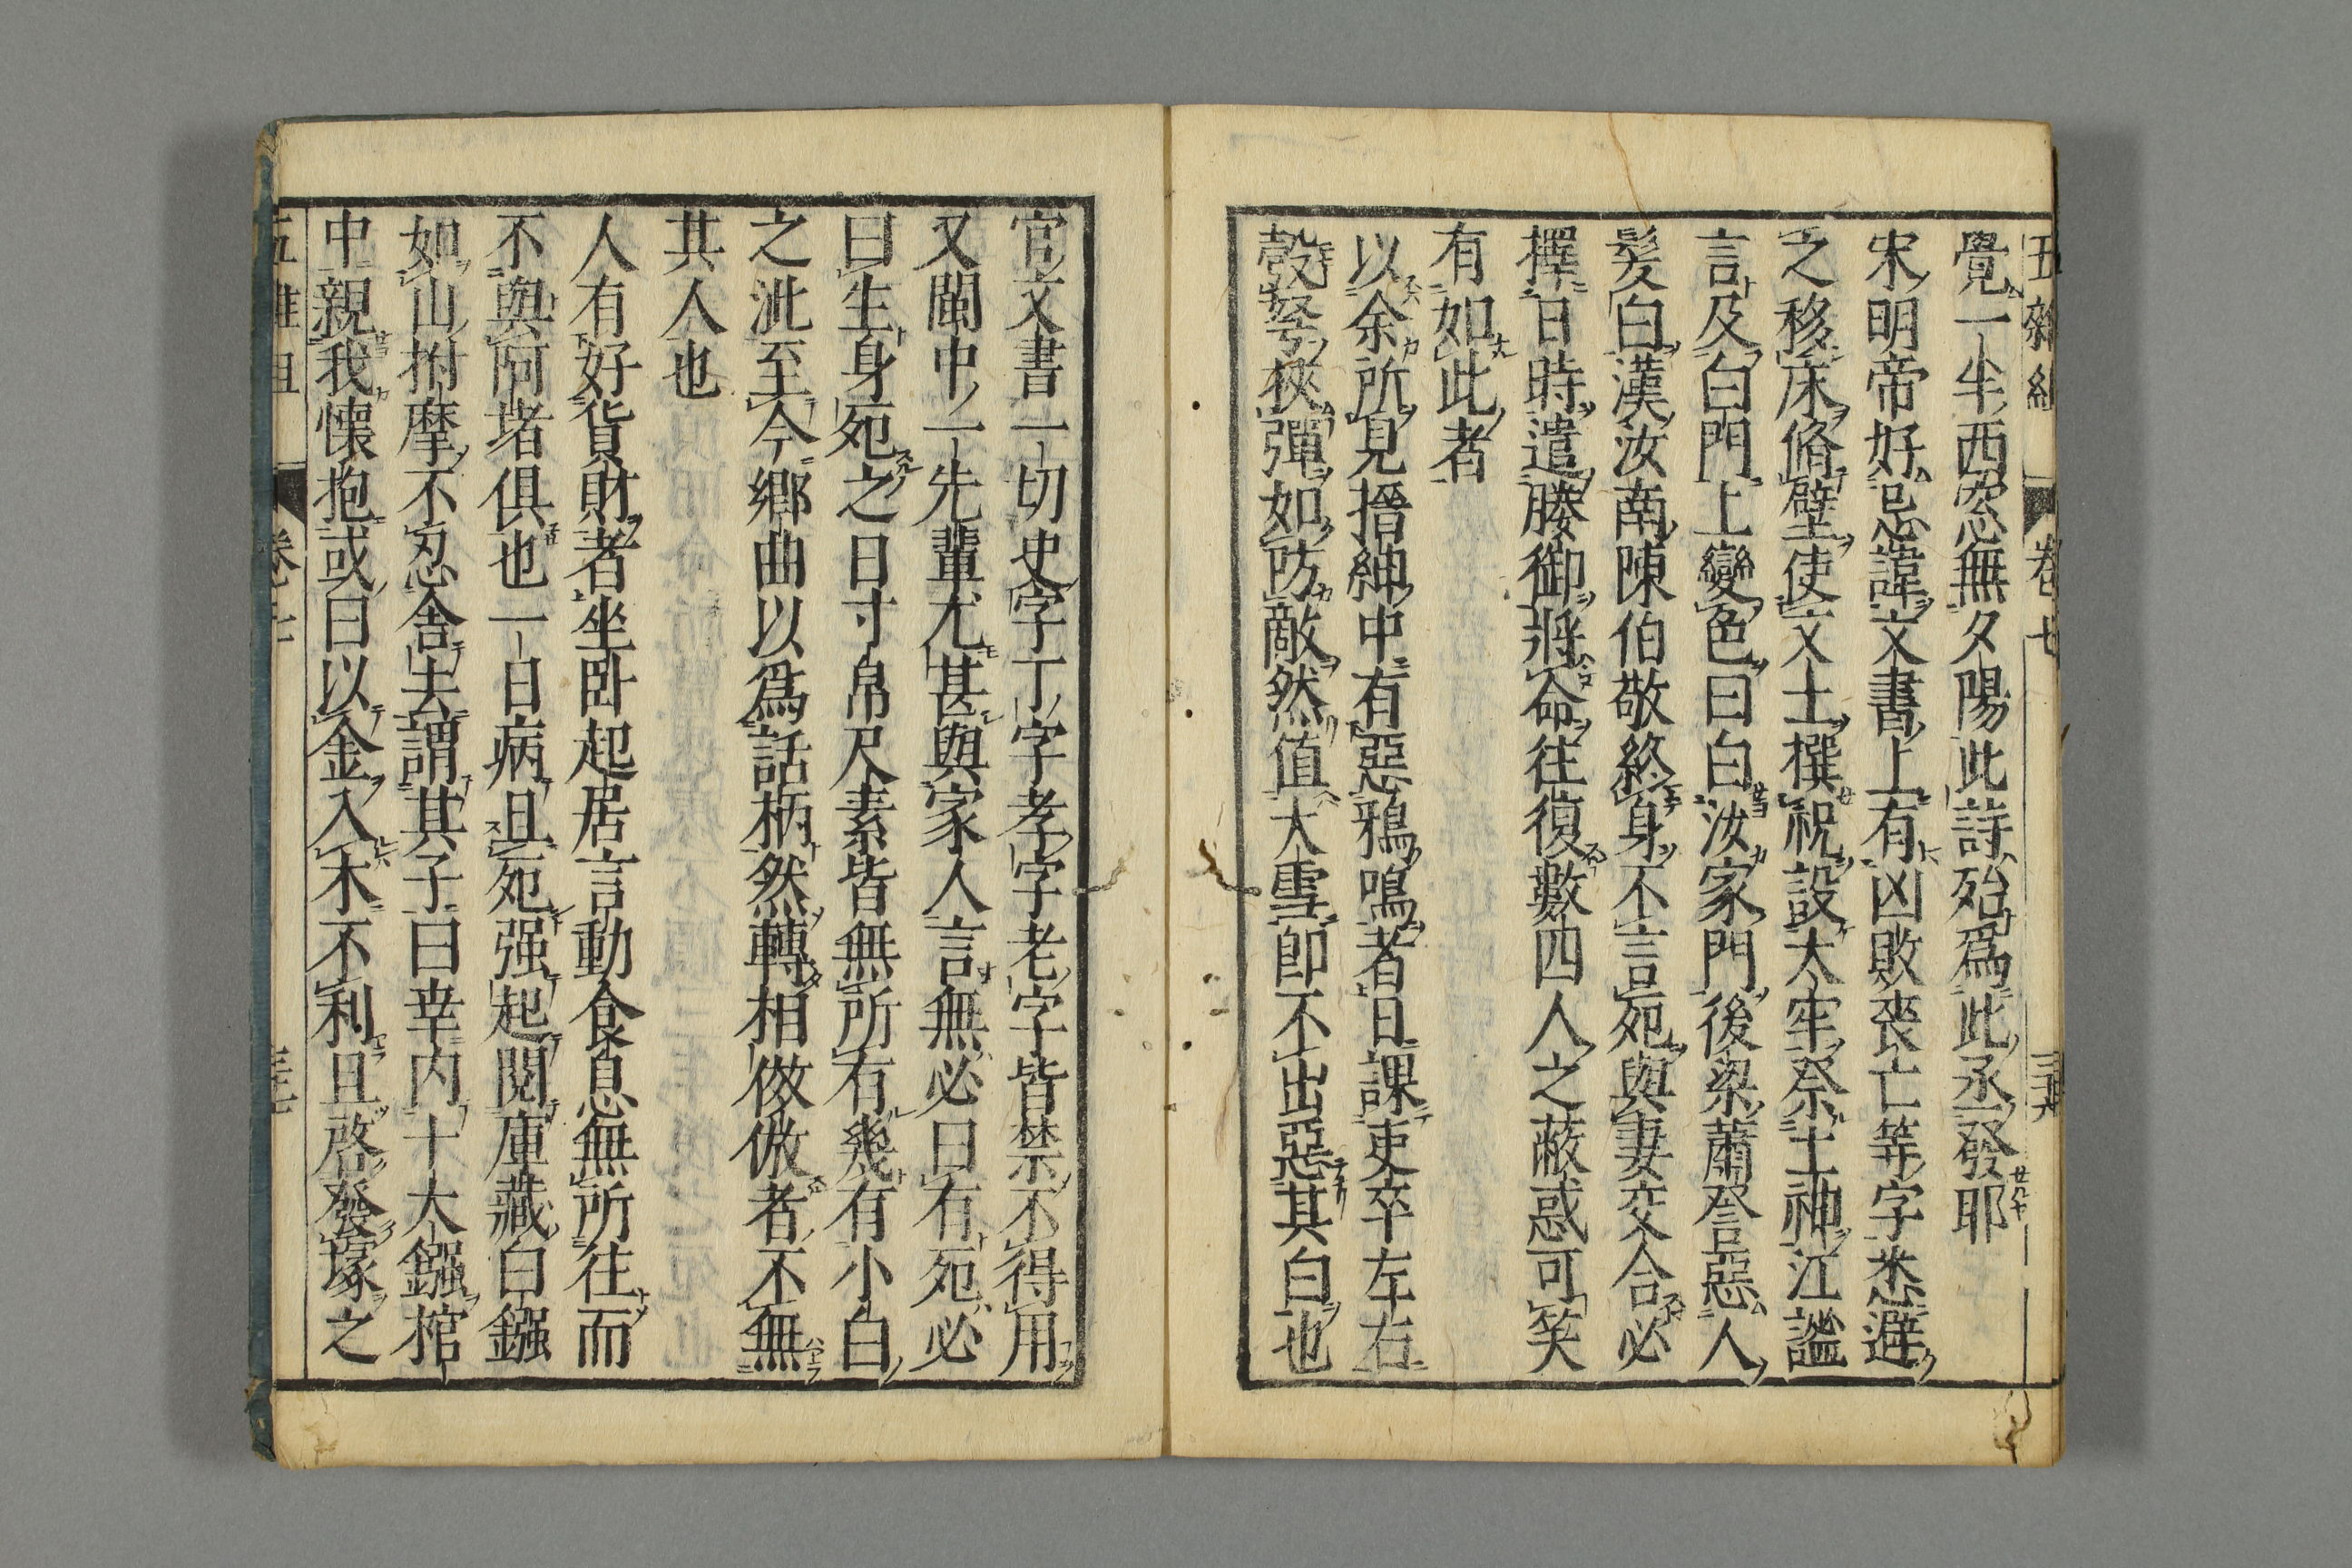 五雜組 卷七 三十六
覺一半西窓無夕陽此詩殆爲此丞發耶
宋明帝好忌諱文書上有凶敗喪亡等字悉避
之移床脩壁使文士撰祝設太牢祭土神江謐
言及白門上變色曰白汝家門後梁蕭詧惡人
髪白漢汝南陳伯敬終身不言死與妻交合必
擇日時遣媵御將命往復數四人之蔽惑可笑
有如此者
以余所見搢紳中有惡鴉鳴者日課吏卒左右
彀弩挾彈如防敵然值大雪即不出惡其白也
官文書一切史字丁字孝字老字皆禁不得用
又閩中一先輩尤甚與家人言無必曰有死必
曰生身死之日寸帛尺素皆無所有幾有小白
之泚至今鄉曲以爲話柄然轉相倣傚者不無
其人也
人有好貨財者坐卧起居言動食息無所往而
不與阿堵俱也一日病且死强起閲庫藏白鏹
如山拊摩不忍舍去謂其子曰幸内十大鏹棺
中親我懐抱或曰以金入木不利且啓發塚之
五雜組 卷七 三十七